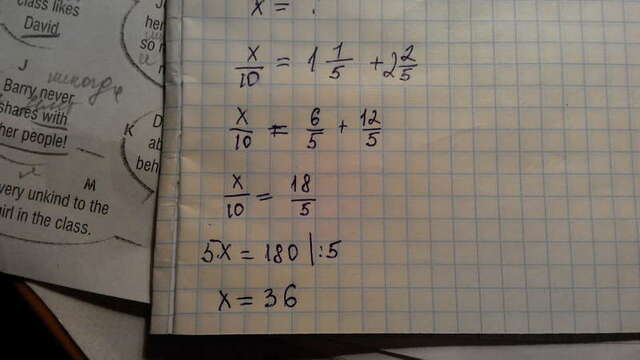 class likes
David
J
Barry never
shares with
her people!
very unkind to the
girl in the class.
K
x = ?
x/10 = 1 1/5 + 2 2/5
x/10 = 6/5 + 12/5
x/10 = 18/5
5x = 180 |:5
x = 36